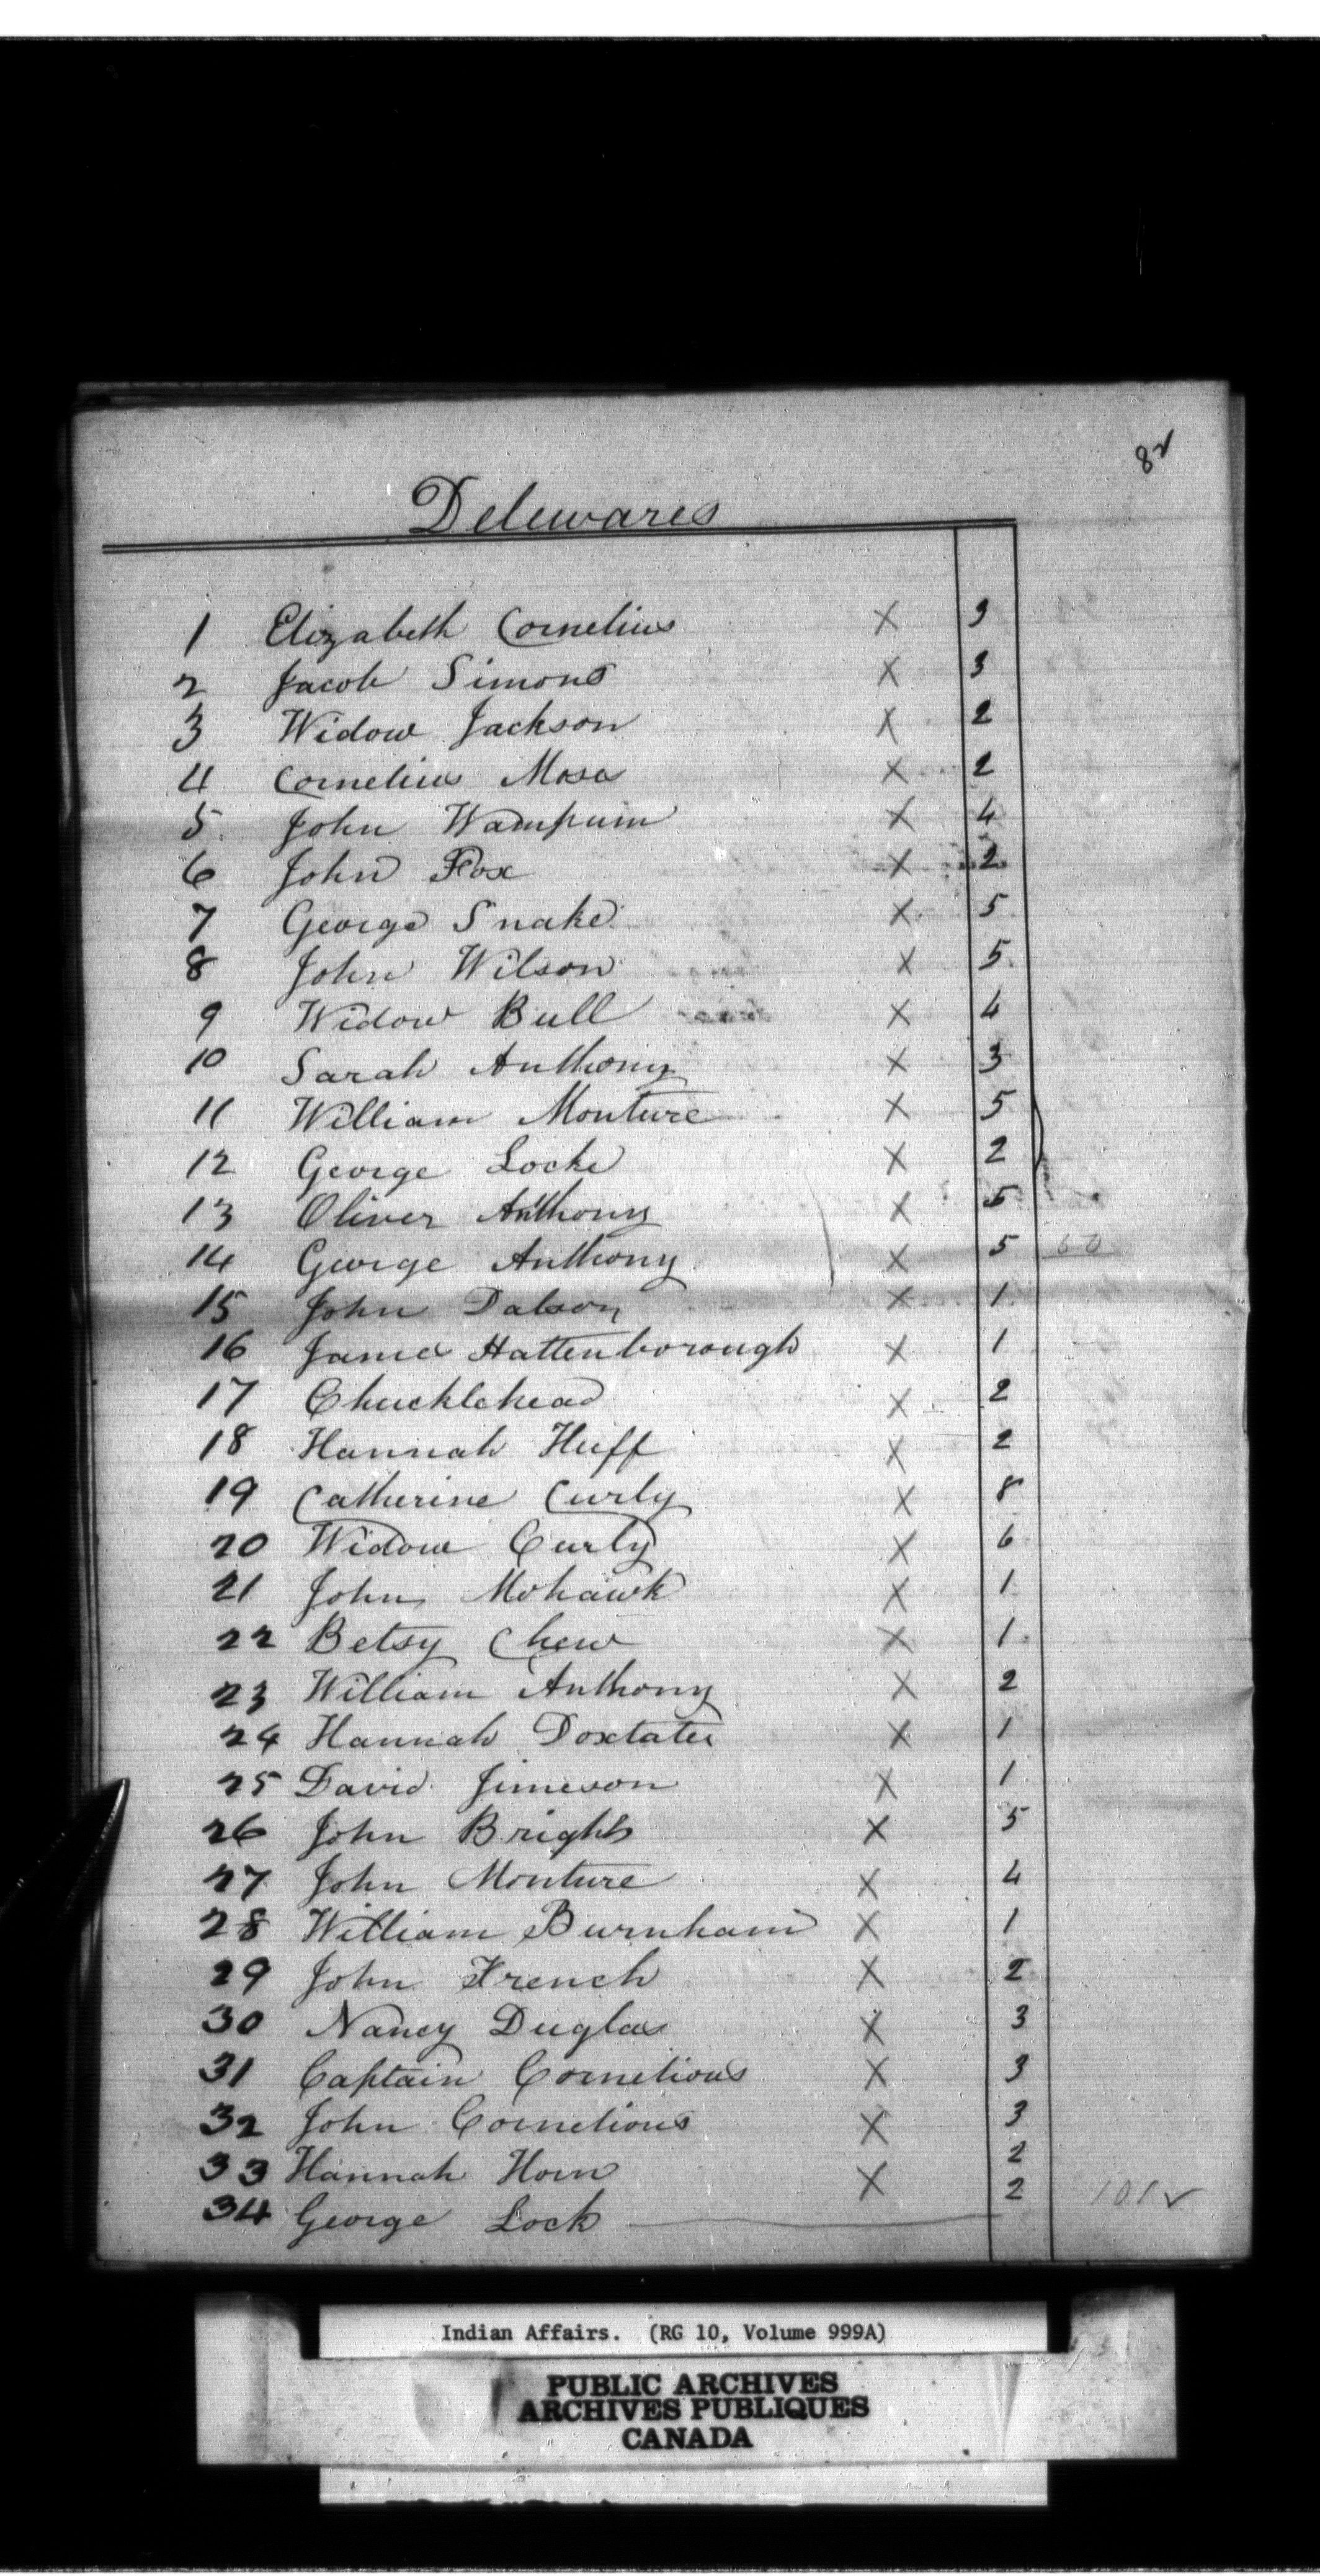 82
Delewares
1 Elizabeth Cornelius X 3
2 Jacob Simons X 3
3 Widow Jackson X 2
4 Cornelius Moses X 2
5 John Wampum X 4
6 John Fox X 2
7 George Snake X 5
8 John Wilson X 5
9 Widow Bull X 4
10 Sarah Anthony X 3
11 William Monture X 5
12 George Locke X 2
13 Oliver Anthony X 5
14 George Anthony X 5 50
15 John Dalson X 1
16 James Hattenborough X 1
17 Chucklehead X 2
18 Hannah Huff X 2
19 Catherine Curly X 8
20 Widow Curly X 6
21 John Mohawk X 1
22 Betsy Chew X 1
23 William Anthony X 2
24 Hannah Doxtater X 1
25 David Jimeson X 1
26 John Bright X 5
27 John Monture X 4
28 William Burnham X 1
29 John French X 2
30 Nancy Duglas X 3
31 Captain Cornelious X 3
32 John Cornelious X 3
33 Hannah Horn X 2
34 George Lock 2 101 ✓
Indian Affairs. (RG 10, Volume 999A)
PUBLIC ARCHIVES
ARCHIVES PUBLIQUES
CANADA